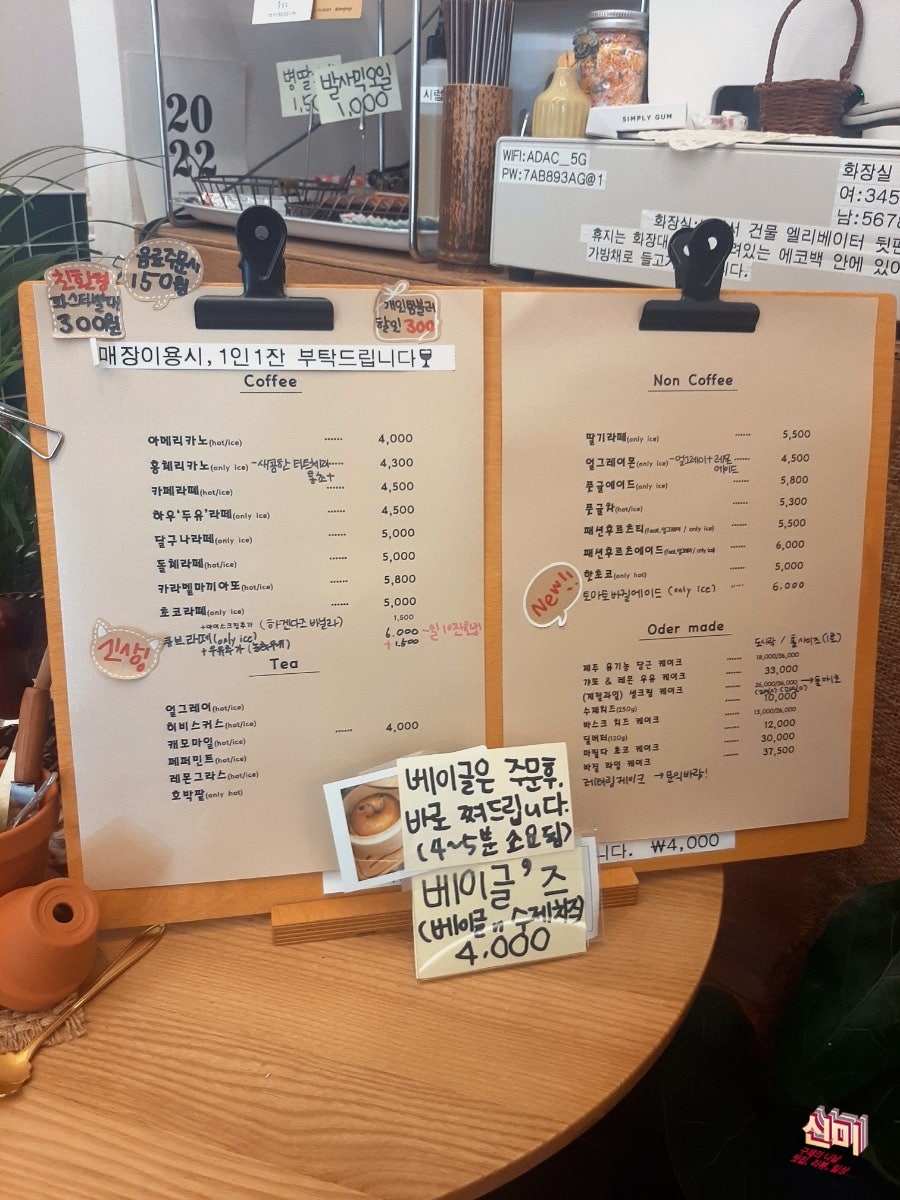 20
22
병딸
1,50
발사믹오일
1,000
시럽
SIMPLY GUM
WIFI:ADAC_5G
PW:7AB893AG@1
화장실
여:345
남:5678
건물 엘리베이터 뒷편
휴지는 화장대 려있는 에코백 안에 있어
가방채로 들고
니다.
친환경
파스티빨대
300원
음료주문시
150원
개인텀블러
할인 300
매장이용시, 1인1잔 부탁드립니다
Coffee
아메리카노(hot/ice) ...... 4,000
홍체리카노(only ice) ...... 4,300
카페라떼(hot/ice) ...... 4,500
하우'두유'라떼(only ice) ...... 4,500
달구나라떼(only ice) ...... 5,000
돌체라떼(hot/ice) ...... 5,000
카라멜마끼아또(hot/ice) ...... 5,800
초코라떼(only ice) ...... 5,000
+아이스크림추가 (하겐다즈 바닐라) 1,500
신상!
큐브라떼(only ice) 6.000 ~일 10잔한정!
+1,500
Tea
얼그레이(hot/ice)
히비스커스(hot/ice)
캐모마일(hot/ice) ...... 4,000
페퍼민트(hot/ice)
레몬그라스(hot/ice)
호박팥(only hot)
Non Coffee
딸기라떼(only ice) ...... 5,500
얼그레이몬(only ice) ~얼그레이+레몬 ...... 4,500
에이드
풋귤에이드(only ice) ...... 5,800
풋귤차(hot/ice) ...... 5,300
패션후르츠티(feat.얼그레이 / only ice) ...... 5,500
패션후르츠에이드(feat.얼그레이 / only ice) ...... 6,000
핫초코(only hot) ...... 5,000
New!!
토마토바질에이드 (only ice) ...... 6.000
Oder made
도시락 / 홀사이즈(1호)
제주 유기농 당근 케이크 ...... 18,000/36,000
쟈또 & 레몬 우유 케이크 ...... 33,000
(계절과일) 생크림 케이크 ...... 26,000/36,000
수제쳐드(250g) 10,000
바스크 쳐드 케이크 ...... 13,000/26,000
딜버터(120g) ...... 12,000
마틸다 초코 케이크 ...... 30,000
바질 라임 케이크 ...... 37,500
레터링케이크 → 문의바람!
베이글은 주문후,
바로 쪄드립니다.
(4~5분 소요됨)
니다. ₩4,000
베이글'즈
(베이글 수제치즈)
4.000
신미